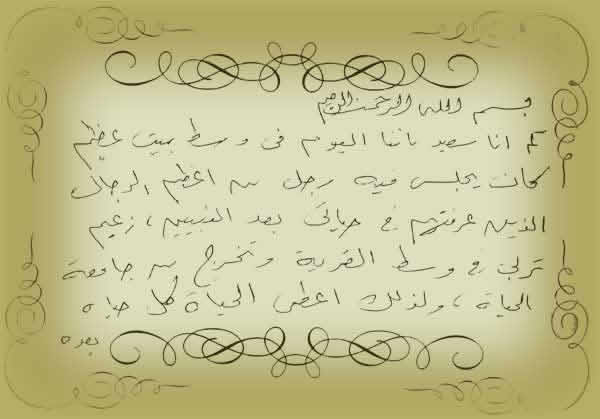 بسم الله الرحمن الرحيم
كم انا سعيد باننا اليوم فى وسط بيت عظيم
كان يجلس فيه رجل من اعظم الرجال
الذين عرفتهم فى حياتى بعد النبيين، زعيم
تربى فى وسط القرية وتخرج من جامعة
الحياة، ولذلك اعطى الحياة كل حياه
بعده